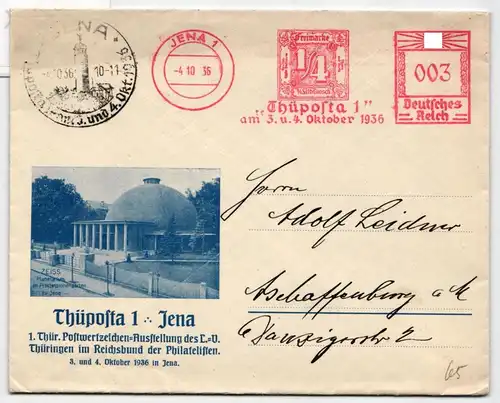 JENA
4.10.36 10-11
3. und 4. Okt. 1936
JENA 1
-4 10 36
Freimarke
1/4
"Thüposta 1"
am 3. u. 4. Oktober 1936
003
Deutsches
Reich
Herrn
Adolf Leidner
Aschaffenburg a M
Danzigerstr 2
ZEISS
Planetarium
im Prinzessinnengarten
zu Jena
Thüposta 1 ∴ Jena
1. Thür. Postwertzeichen-Ausstellung des L.-V.
Thüringen im Reichsbund der Philatelisten.
3. und 4. Oktober 1936 in Jena.
65